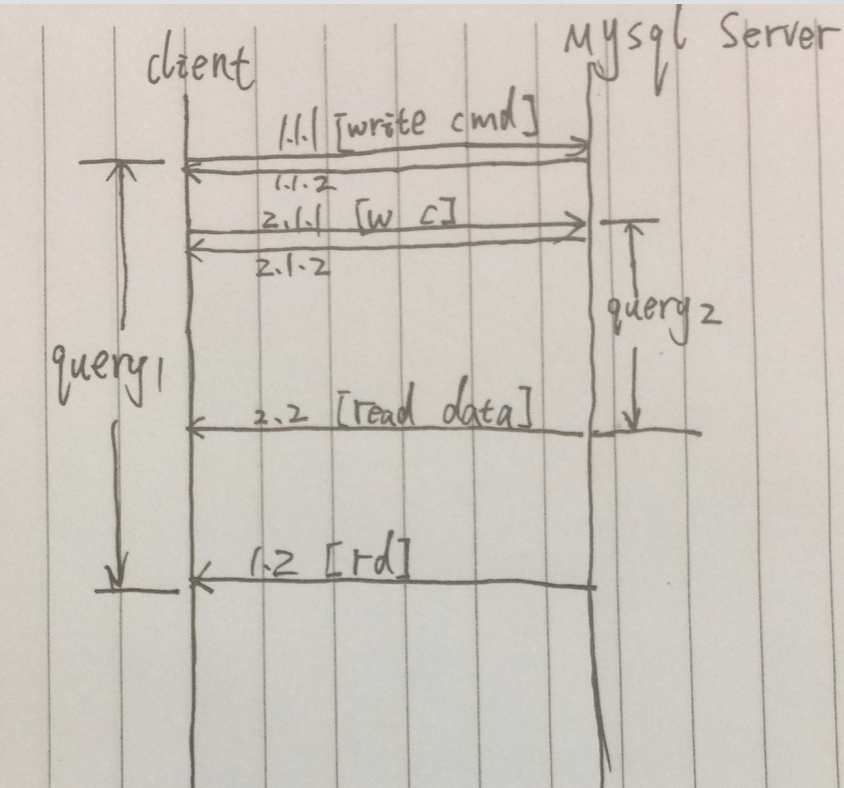 client
Mysql Server
1.1.1 [write cmd]
1.1.2
2.1.1 [w c]
2.1.2
query2
query1
2.2 [read data]
1.2 [rd]